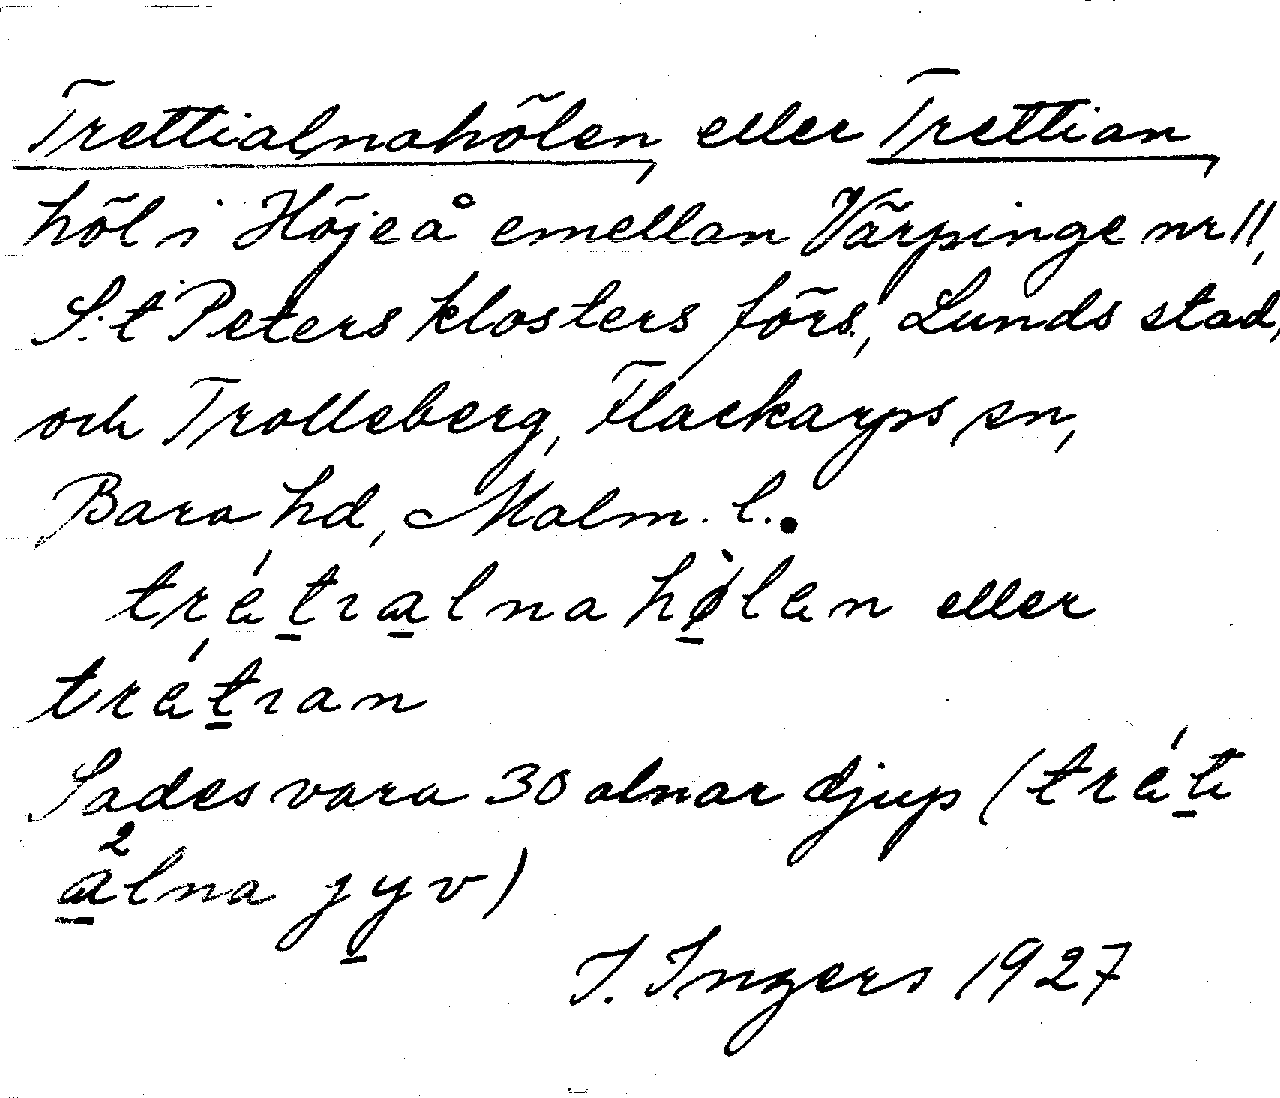 Trettialnahölen, eller Trettian,
höl i Höjeå emellan Värpinge nr 11,
S:t Peters klosters förs., Lunds stad,
och Trolleberg, Flackarps sn,
Bara hd, Malm. l.
trétıalnahø̀lan eller
trétıan
Sades vara 30 alnar djup (trétı
²alna jyv)
I. Ingers 1927